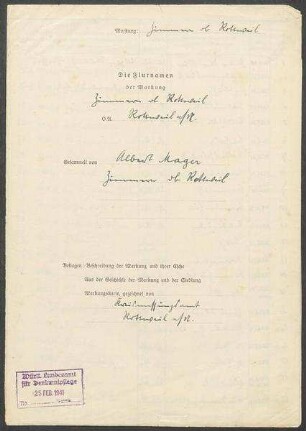 Markung Zimmern ob Rottweil
Die Flurnamen
der Markung
Zimmern ob Rottweil
O.A. Rottweil a/N.
Gesammelt von Albert Mager
Zimmern ob Rottweil
Beilagen: Beschreibung der Markung und ihrer Teile
Aus der Geschichte der Markung und der Siedlung
Markungskarte, gezeichnet von
Rottweil a/N.
Württ. Landesamt
für Denkmalpflege
25. FEB. 1941